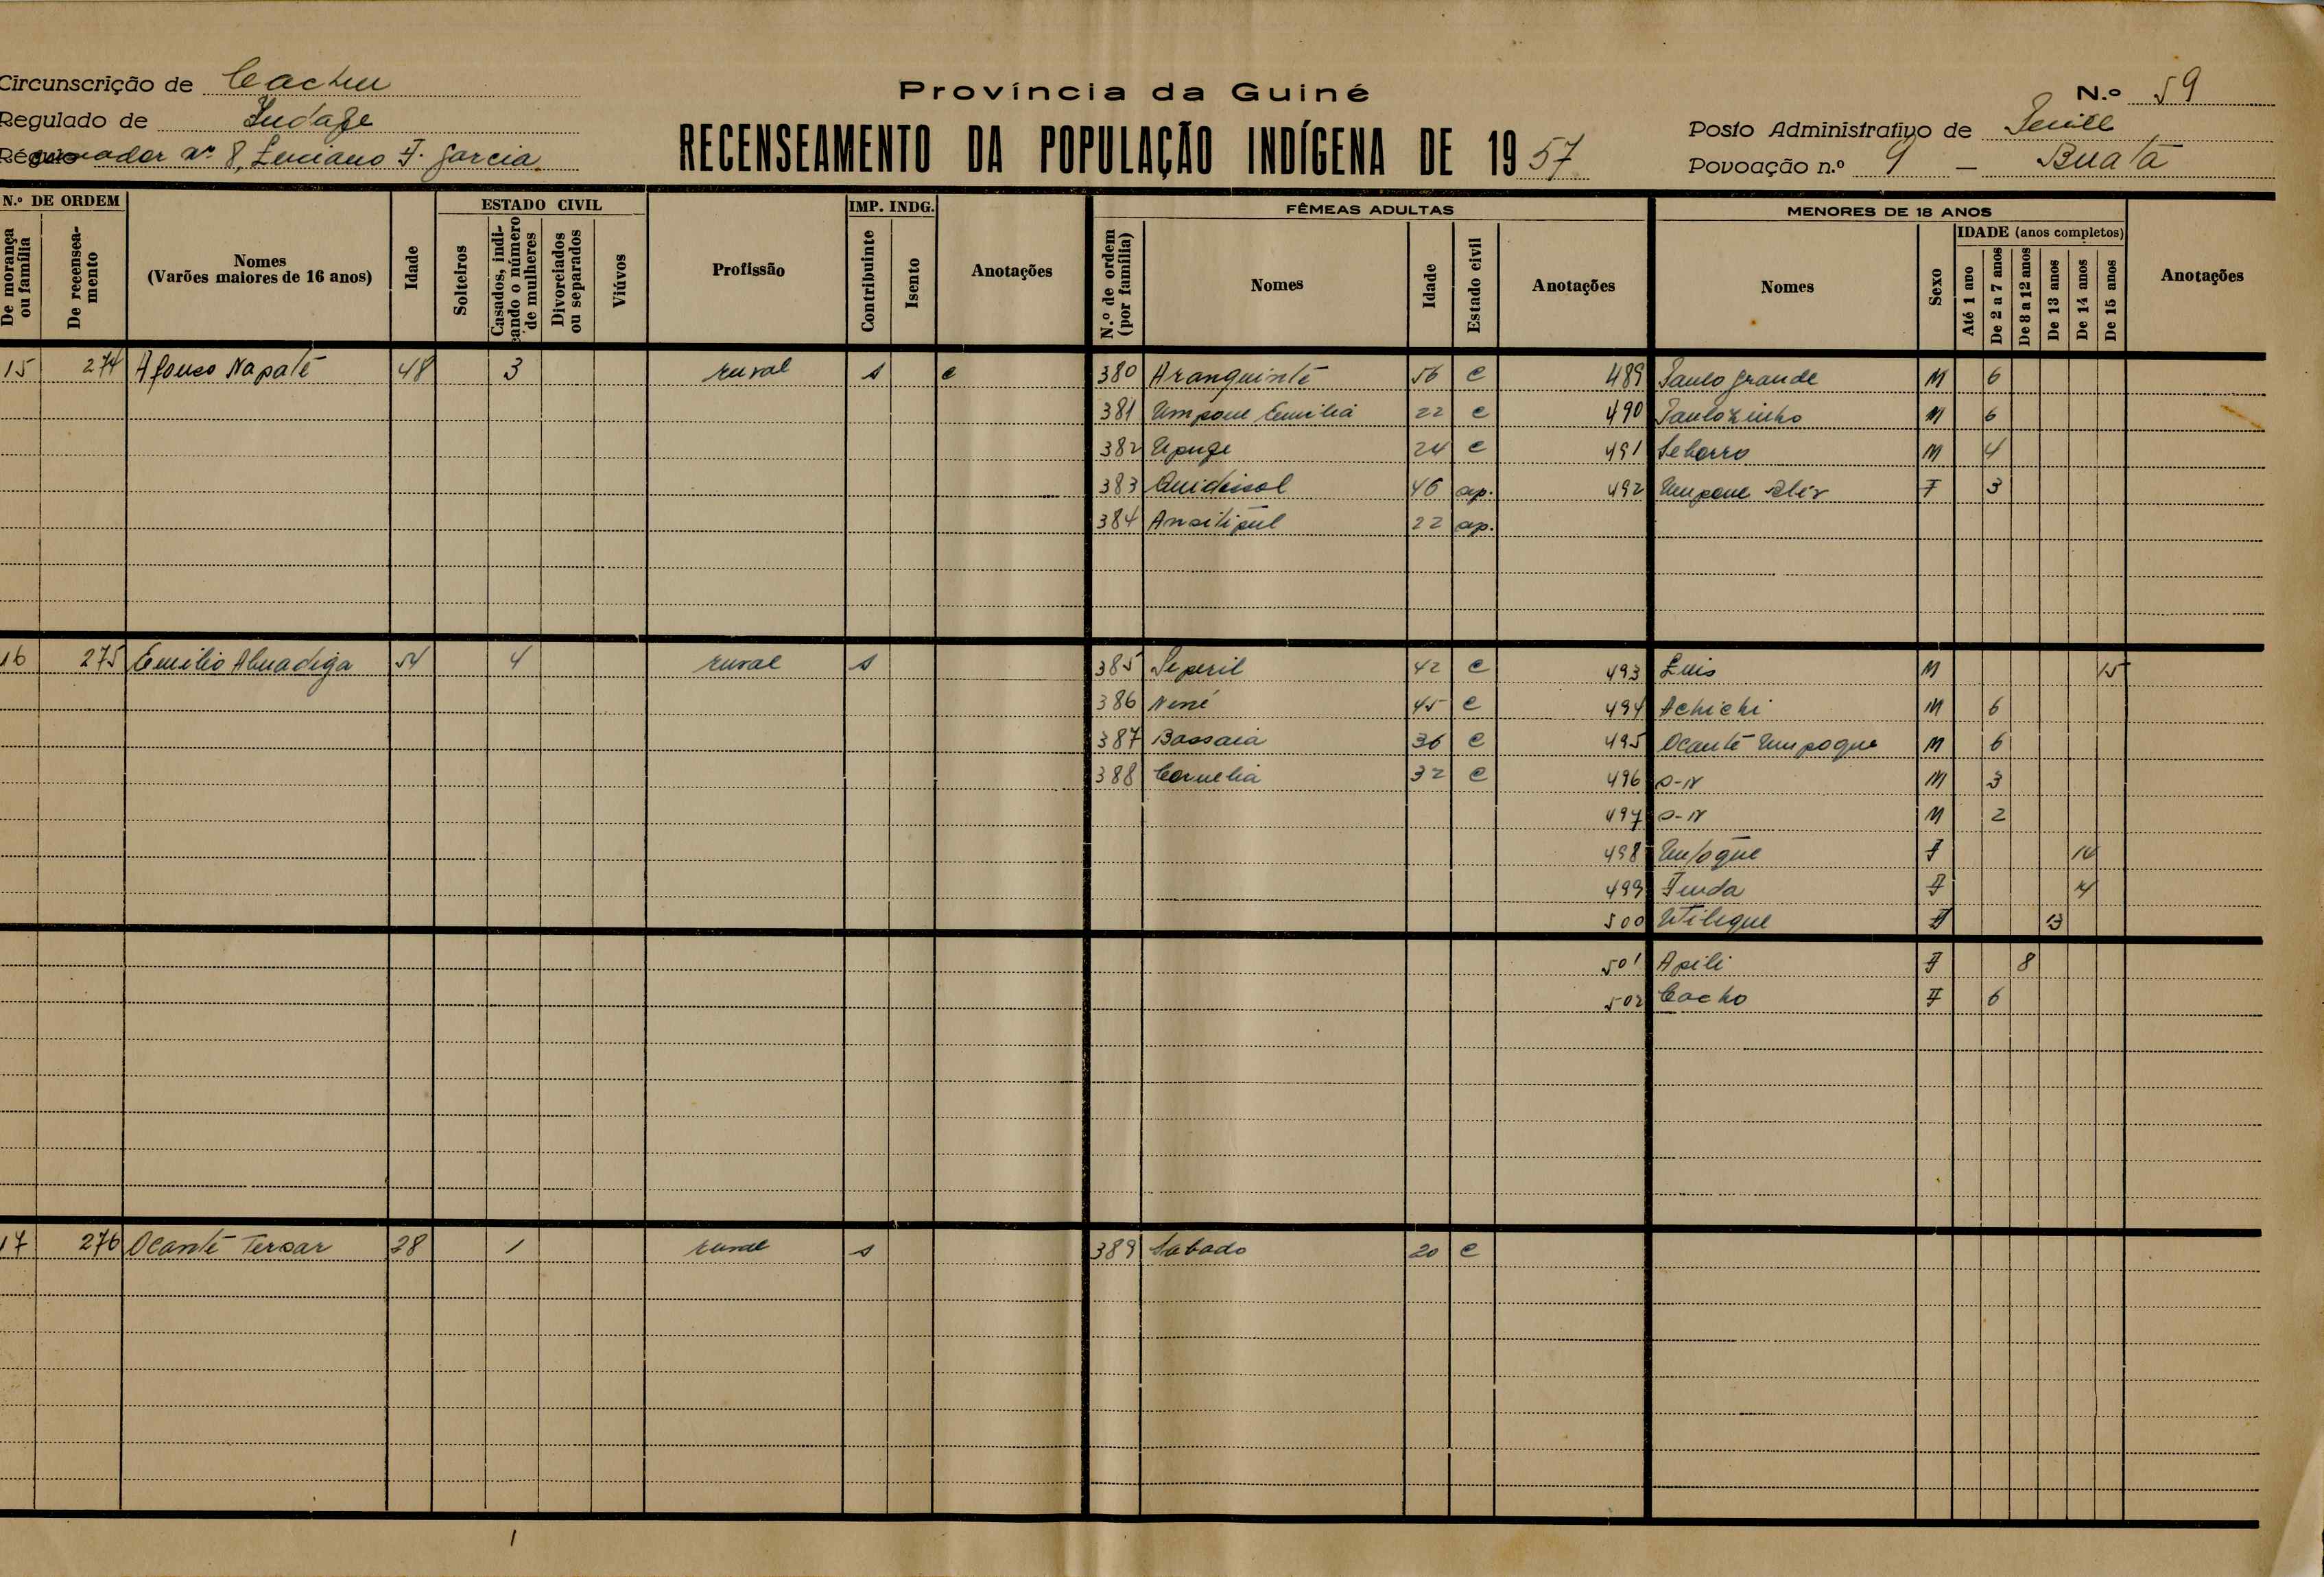 Circunscrição de Cacheu
Província da Guiné
N.º 59
Regulado de
RECENSEAMENTO DA POPULAÇÃO INDÍGENA DE 1957
Posto Administrativo de
nº 8, Luciano F. Garcia
Povoação n.º 9 - Buatã
N.º DE ORDEM
De morança ou família
De recenseamento
Nomes
(Varões maiores de 16 anos)
Idade
ESTADO CIVIL
Solteiros
Casados, indicando o número de mulheres
Divorciados ou separados
Viúvos
Profissão
IMP. INDG.
Contribuinte
Isento
Anotações
FÊMEAS ADULTAS
N.º de ordem (por família)
Nomes
Idade
Estado civil
Anotações
MENORES DE 18 ANOS
Nomes
Sexo
IDADE (anos completos)
Até 1 ano
De 2 a 7 anos
De 8 a 12 anos
De 13 anos
De 14 anos
De 15 anos
Anotações
15 274 Afonso Napatê 48 3 rural s c 380 Aranquintê 56 c 489 Paulo Grande M 6
381 Umpone Emilia 22 c 490 Paulozinho M 6
382 24 c 491 M 4
383 46 ap. 492 Umpone F 3
384 22 ap.
16 275 Emilio 54 4 rural s 385 Seperil 42 c 493 Luis M 15
386 Nené 45 c 494 Achichi M 6
387 Bassaia 36 c 495 Ocantê Umpoque M 6
388 Cornelia 32 c 496 S-N M 3
497 S-N M 2
498 F 14
499 F 14
500 F 13
501 Apili F 8
502 Cacho F 6
17 276 Ocantê 28 1 rural s 389 Sabado 20 c
1